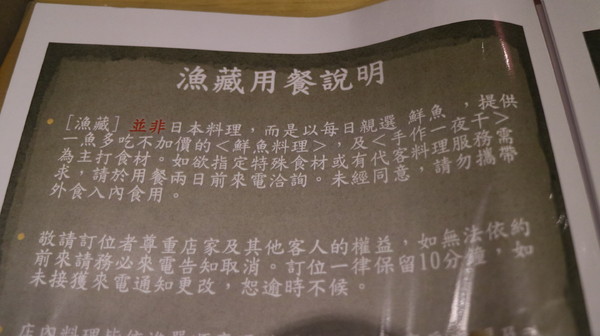 漁藏用餐說明
[漁藏] 並非日本料理，而是以每日親選 鮮魚，提供
一魚多吃不加價的<鮮魚料理>，及<手作一夜干>
為主打食材。如欲指定特殊食材或有代客料理服務需
求，請於用餐兩日前來電洽詢。未經同意，請勿攜帶
外食入內食用。
敬請訂位者尊重店家及其他客人的權益，如無法依約
前來請務必來電告知取消。訂位一律保留10分鐘，如
未接獲來電通知更改，恕逾時不候。
店內料理皆依